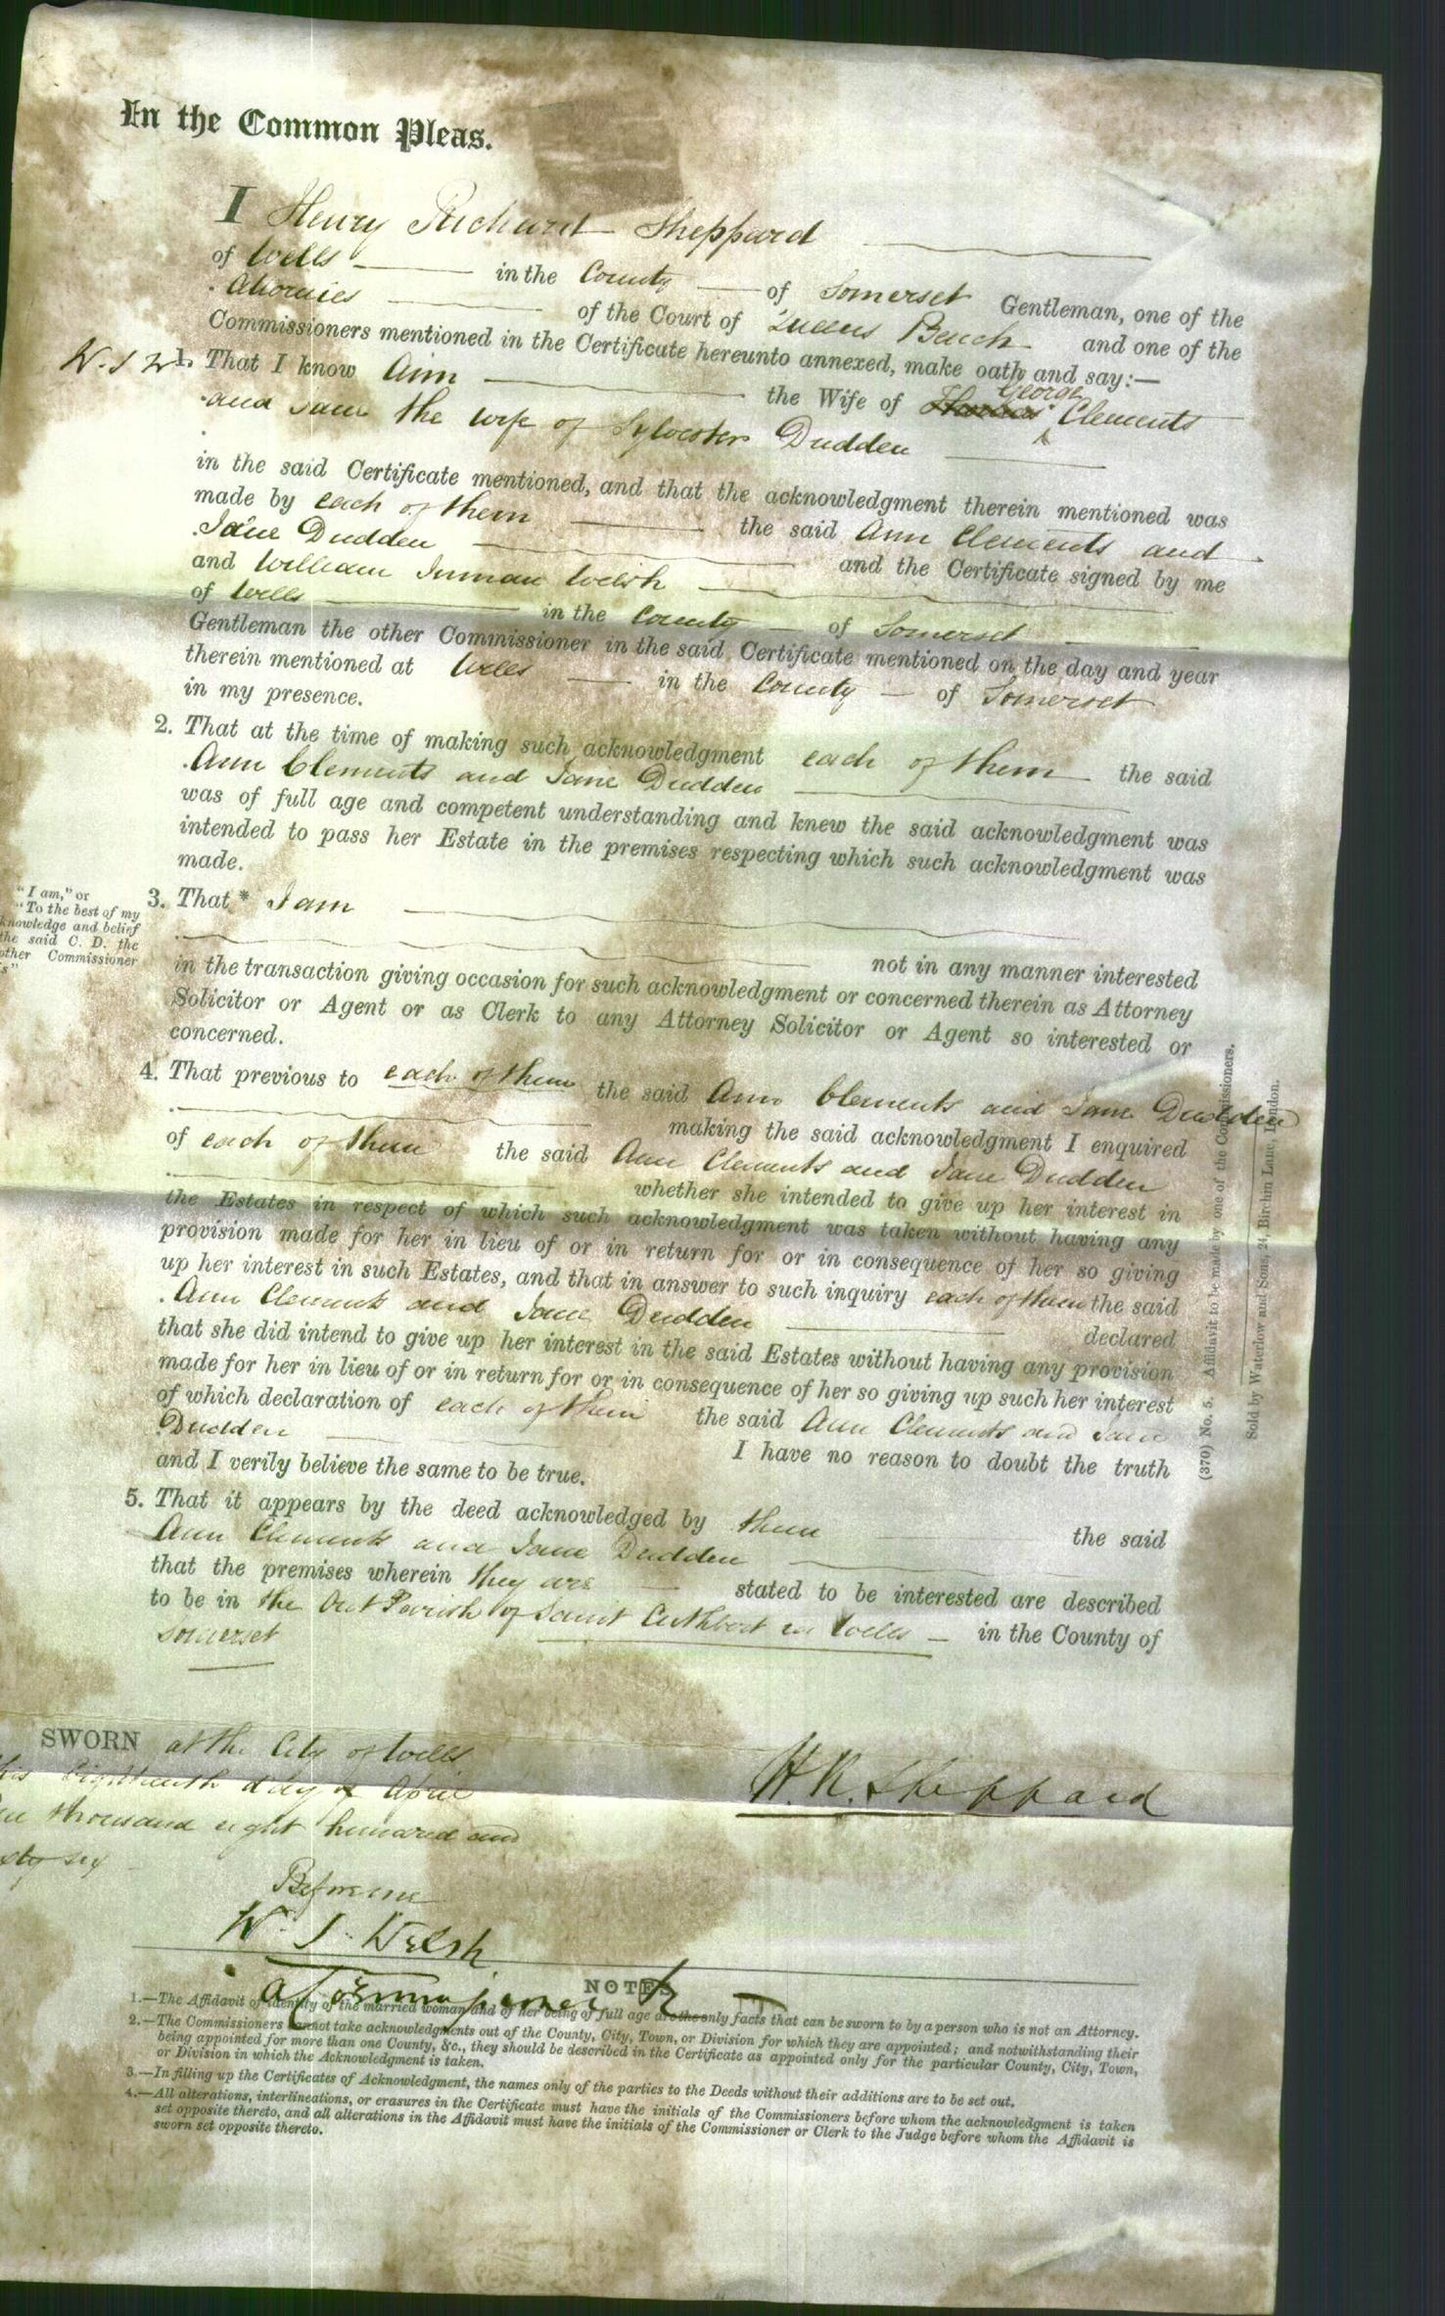 In the Common Pleas.
I Henry Richard Sheppard
of Wells in the County of Somerset Gentleman, one of the
Attornies of the Court of Queens Bench and one of the
Commissioners mentioned in the Certificate hereunto annexed, make oath and say:—
W. I W 1. That I know Ann the Wife of George Clements
and Jane the wife of Sylvester Dudden
in the said Certificate mentioned, and that the acknowledgment therein mentioned was
made by each of them the said Ann Clements and
Jane Dudden and the Certificate signed by me
and William Inman Welsh
of Wells in the County of Somerset
Gentleman the other Commissioner in the said Certificate mentioned on the day and year
therein mentioned at Wells in the County of Somerset
in my presence.
2. That at the time of making such acknowledgment each of them the said
Ann Clements and Jane Dudden
was of full age and competent understanding and knew the said acknowledgment was
intended to pass her Estate in the premises respecting which such acknowledgment was
made.
"I am," or
"To the best of my
knowledge and belief
the said C. D. the
other Commissioner
is"
3. That* I am
not in any manner interested
in the transaction giving occasion for such acknowledgment or concerned therein as Attorney
Solicitor or Agent or as Clerk to any Attorney Solicitor or Agent so interested or
concerned.
4. That previous to each of them the said Ann Clements and Jane Dudden
making the said acknowledgment I enquired
of each of them the said Ann Clements and Jane Dudden
whether she intended to give up her interest in
the Estates in respect of which such acknowledgment was taken without having any
provision made for her in lieu of or in return for or in consequence of her so giving
up her interest in such Estates, and that in answer to such inquiry each of them the said
Ann Clements and Jane Dudden declared
that she did intend to give up her interest in the said Estates without having any provision
made for her in lieu of or in return for or in consequence of her so giving up such her interest
of which declaration of each of them the said Ann Clements and Jane
Dudden I have no reason to doubt the truth
and I verily believe the same to be true.
5. That it appears by the deed acknowledged by them the said
Ann Clements and Jane Dudden
that the premises wherein they are stated to be interested are described
to be in the Out Parish of Saint Cuthbert in Wells in the County of
Somerset
(370) No. 5. Affidavit to be made by one of the Commissioners.
Sold by Waterlow and Sons, 24, Birchin Lane, London.
SWORN at the City of Wells
this Eighteenth day of April
One thousand eight hundred and
sixty six
H. R. Sheppard
Before me
W. I. Welsh
a Commissioner &c
NOTES
1.—The Affidavit of identity of the married woman and of her being of full age are the only facts that can be sworn to by a person who is not an Attorney.
2.—The Commissioners cannot take acknowledgments out of the County, City, Town, or Division for which they are appointed; and notwithstanding their
being appointed for more than one County, &c., they should be described in the Certificate as appointed only for the particular County, City, Town,
or Division in which the Acknowledgment is taken.
3.—In filling up the Certificates of Acknowledgment, the names only of the parties to the Deeds without their additions are to be set out.
4.—All alterations, interlineations, or erasures in the Certificate must have the initials of the Commissioners before whom the acknowledgment is taken
set opposite thereto, and all alterations in the Affidavit must have the initials of the Commissioner or Clerk to the Judge before whom the Affidavit is
sworn set opposite thereto.